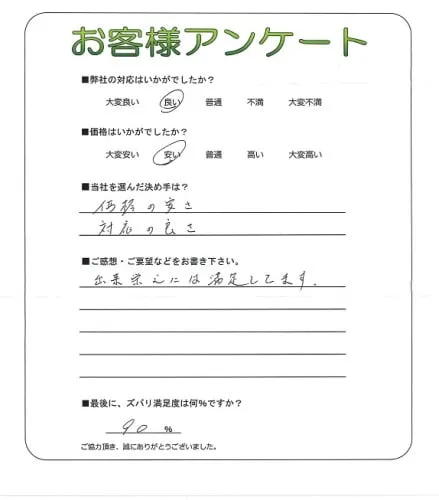 お客様アンケート
■弊社の対応はいかがでしたか？
大変良い 良い 普通 不満 大変不満
■価格はいかがでしたか？
大変安い 安い 普通 高い 大変高い
■当社を選んだ決め手は？
価格の安さ
対応の良さ
■ご感想・ご要望などをお書き下さい。
出来栄えには満足してます。
■最後に、ズバリ満足度は何％ですか？
90 ％
ご協力頂き、誠にありがとうございました。